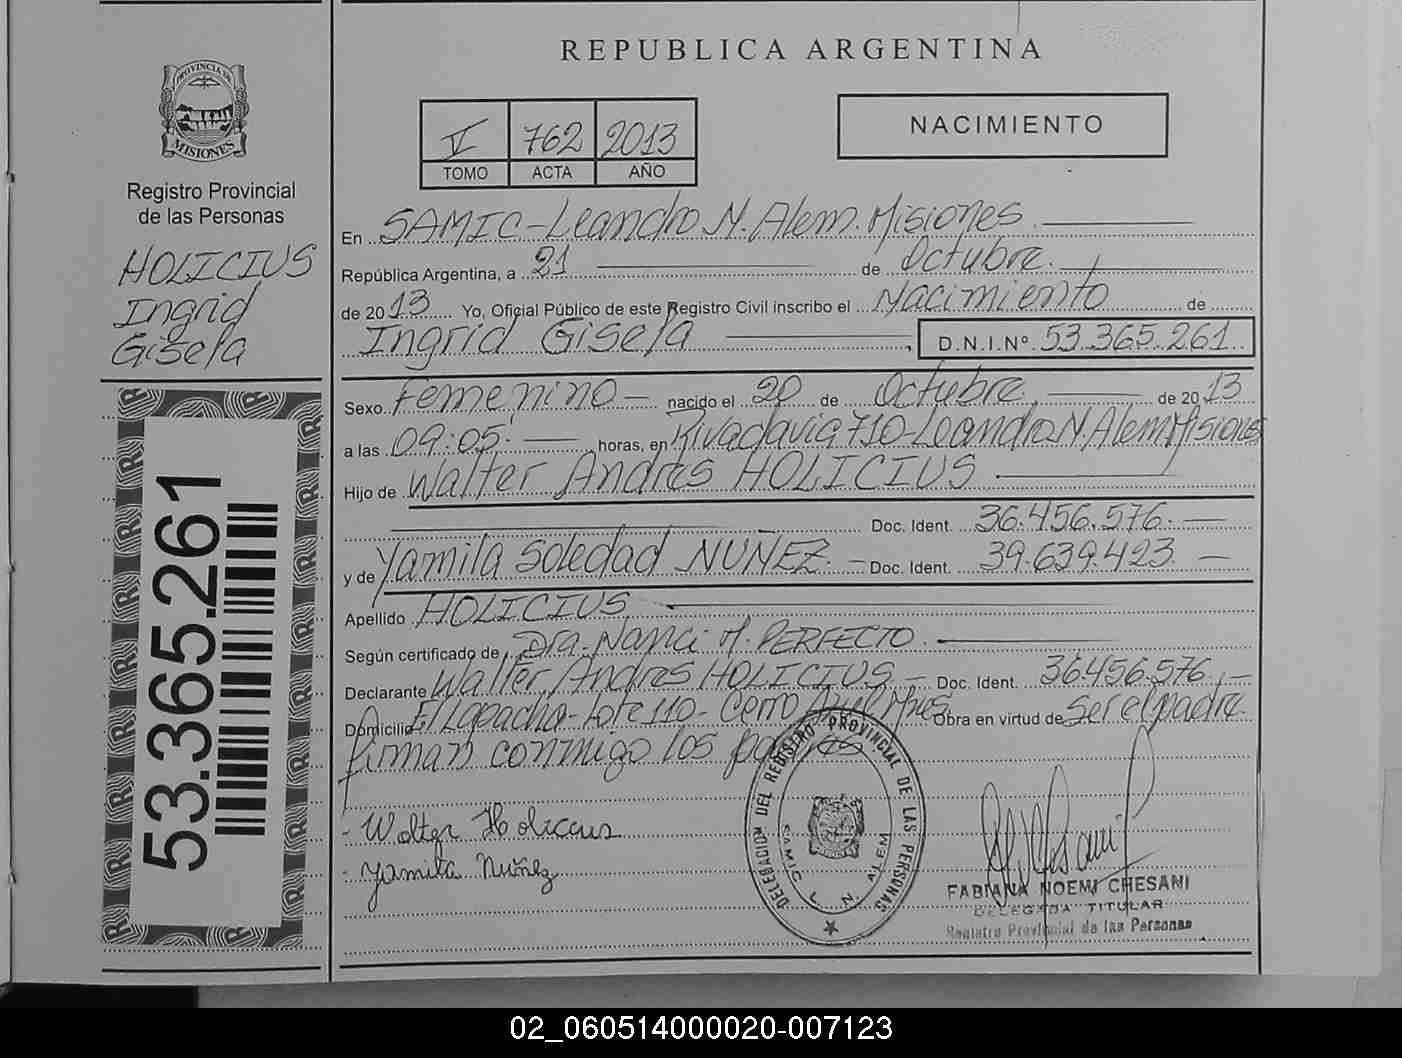 REPUBLICA ARGENTINA
PROVINCIA DE
MISIONES
Registro Provincial
de las Personas
HOLICIUS
Ingrid
Gisela
53.365.261
V 762 2013
TOMO ACTA AÑO
NACIMIENTO
En SAMIC-Leandro N. Alem. Misiones
República Argentina, a 21 de Octubre.
de 2013 Yo, Oficial Público de este Registro Civil inscribo el Nacimiento de
Ingrid Gisela, D.N.I.Nº 53.365.261
Sexo Femenino nacido el 20 de Octubre de 2013
a las 09:05 horas, en Rivadavia 710-Leandro N. Alem Misiones
Hijo de Walter Andrés HOLICIUS
Doc. Ident. 36.456.576.
y de Yamila Soledad NUÑEZ. Doc. Ident. 39.639.423
Apellido HOLICIUS
Según certificado de Dra. Nanci M. PERFECTO.
Declarante Walter Andrés HOLICIUS Doc. Ident. 36.456.576
Domicilio El Lapacho-Lote 110-Cerro Azul Mnes Obra en virtud de Ser el padre
firman conmigo los padres
Walter Holicius
Yamila Nuñez
DELEGACION DEL REGISTRO PROVINCIAL DE LAS PERSONAS
SAMIC L. N. ALEM
FABIANA NOEMI CHESANI
DELEGADA TITULAR
Registro Provincial de las Personas
02_060514000020-007123